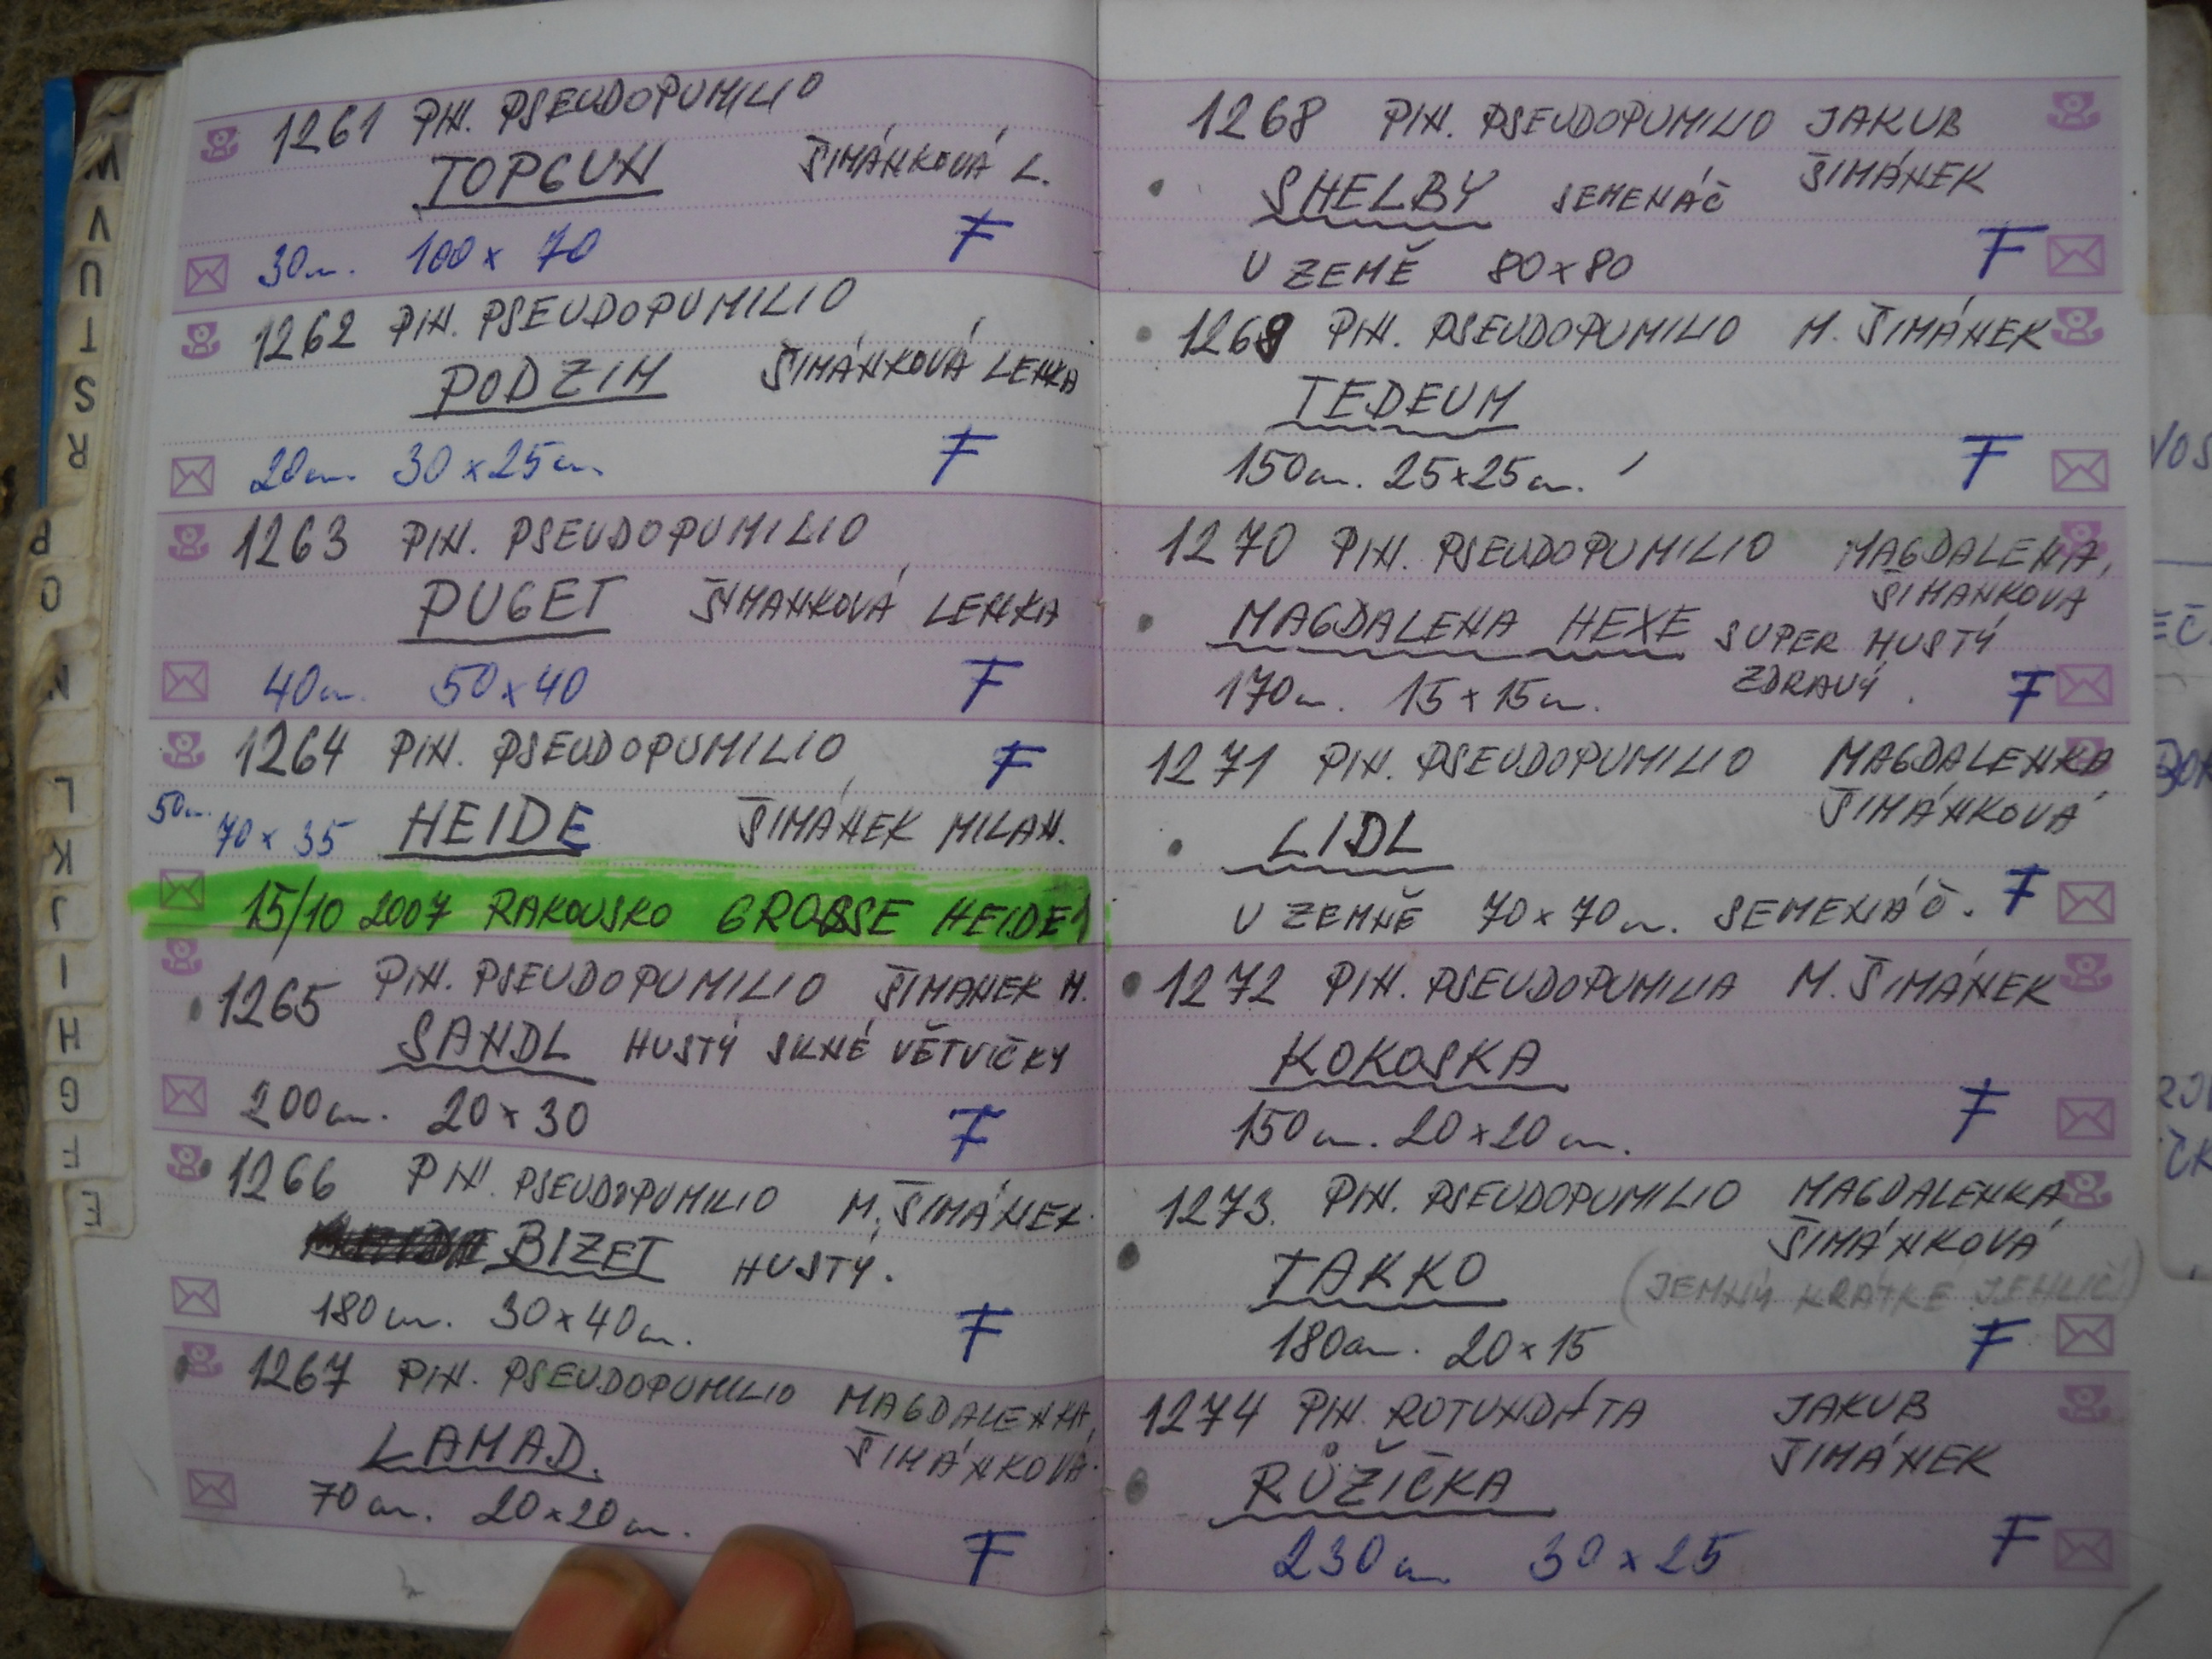 1261 PIN. PSEUDOPUMILIO
TOPGUN ŠIMÁNKOVÁ L.
30cm. 100x70 F
1262 PIN. PSEUDOPUMILIO
PODZIM ŠIMÁNKOVÁ LENKA
20cm. 30x25cm. F
1263 PIN. PSEUDOPUMILIO
PUGET ŠIMÁNKOVÁ LENKA
40cm. 50x40 F
1264 PIN. PSEUDOPUMILIO F
50cm. 70x35 HEIDE ŠIMÁNEK MILAN.
15/10 2007 RAKOUSKO GROSSE HEIDE 1
1265 PIN. PSEUDOPUMILIO ŠIMÁNEK M.
SANDL HUSTÝ SILNÉ VĚTVIČKY
200cm. 20x30 F
1266 PIN. PSEUDOPUMILIO M. ŠIMÁNEK.
BIZET HUSTÝ.
180cm. 30x40cm. F
1267 PIN. PSEUDOPUMILIO MAGDALENKA
ŠIMÁNKOVÁ.
LAMAD.
70cm. 20x20cm. F
1268 PIN. PSEUDOPUMILIO JAKUB
SHELBY SEMENÁČ ŠIMÁNEK
U ZEMĚ 80x80 F
1269 PIN. PSEUDOPUMILIO M. ŠIMÁNEK
TEDEUM
150cm. 25x25cm. F
1270 PIN. PSEUDOPUMILIO MAGDALENA
ŠIMÁNKOVA
MAGDALENA HEXE SUPER HUSTÝ
170cm. 15x15cm. ZDRAVÝ. F
1271 PIN. PSEUDOPUMILIO MAGDALENKA
LIDL ŠIMÁNKOVÁ
U ZEMNĚ 70x70cm. SEMENÁČ. F
1272 PIN. PSEUDOPUMILIA M. ŠIMÁNEK
KOKOSKA
150cm. 20x20cm. F
1273. PIN. PSEUDOPUMILIO MAGDALENKA
ŠIMÁNKOVÁ
TAKKO (JEMNÝ KRÁTKÉ JEHLIČÍ)
180cm. 20x15 F
1274 PIN. ROTUNDÁTA JAKUB
RŮŽIČKA ŠIMÁNEK
230cm 30x25 F
W
V
U
T
S
R
P
O
N
L
K
J
I
H
G
F
E